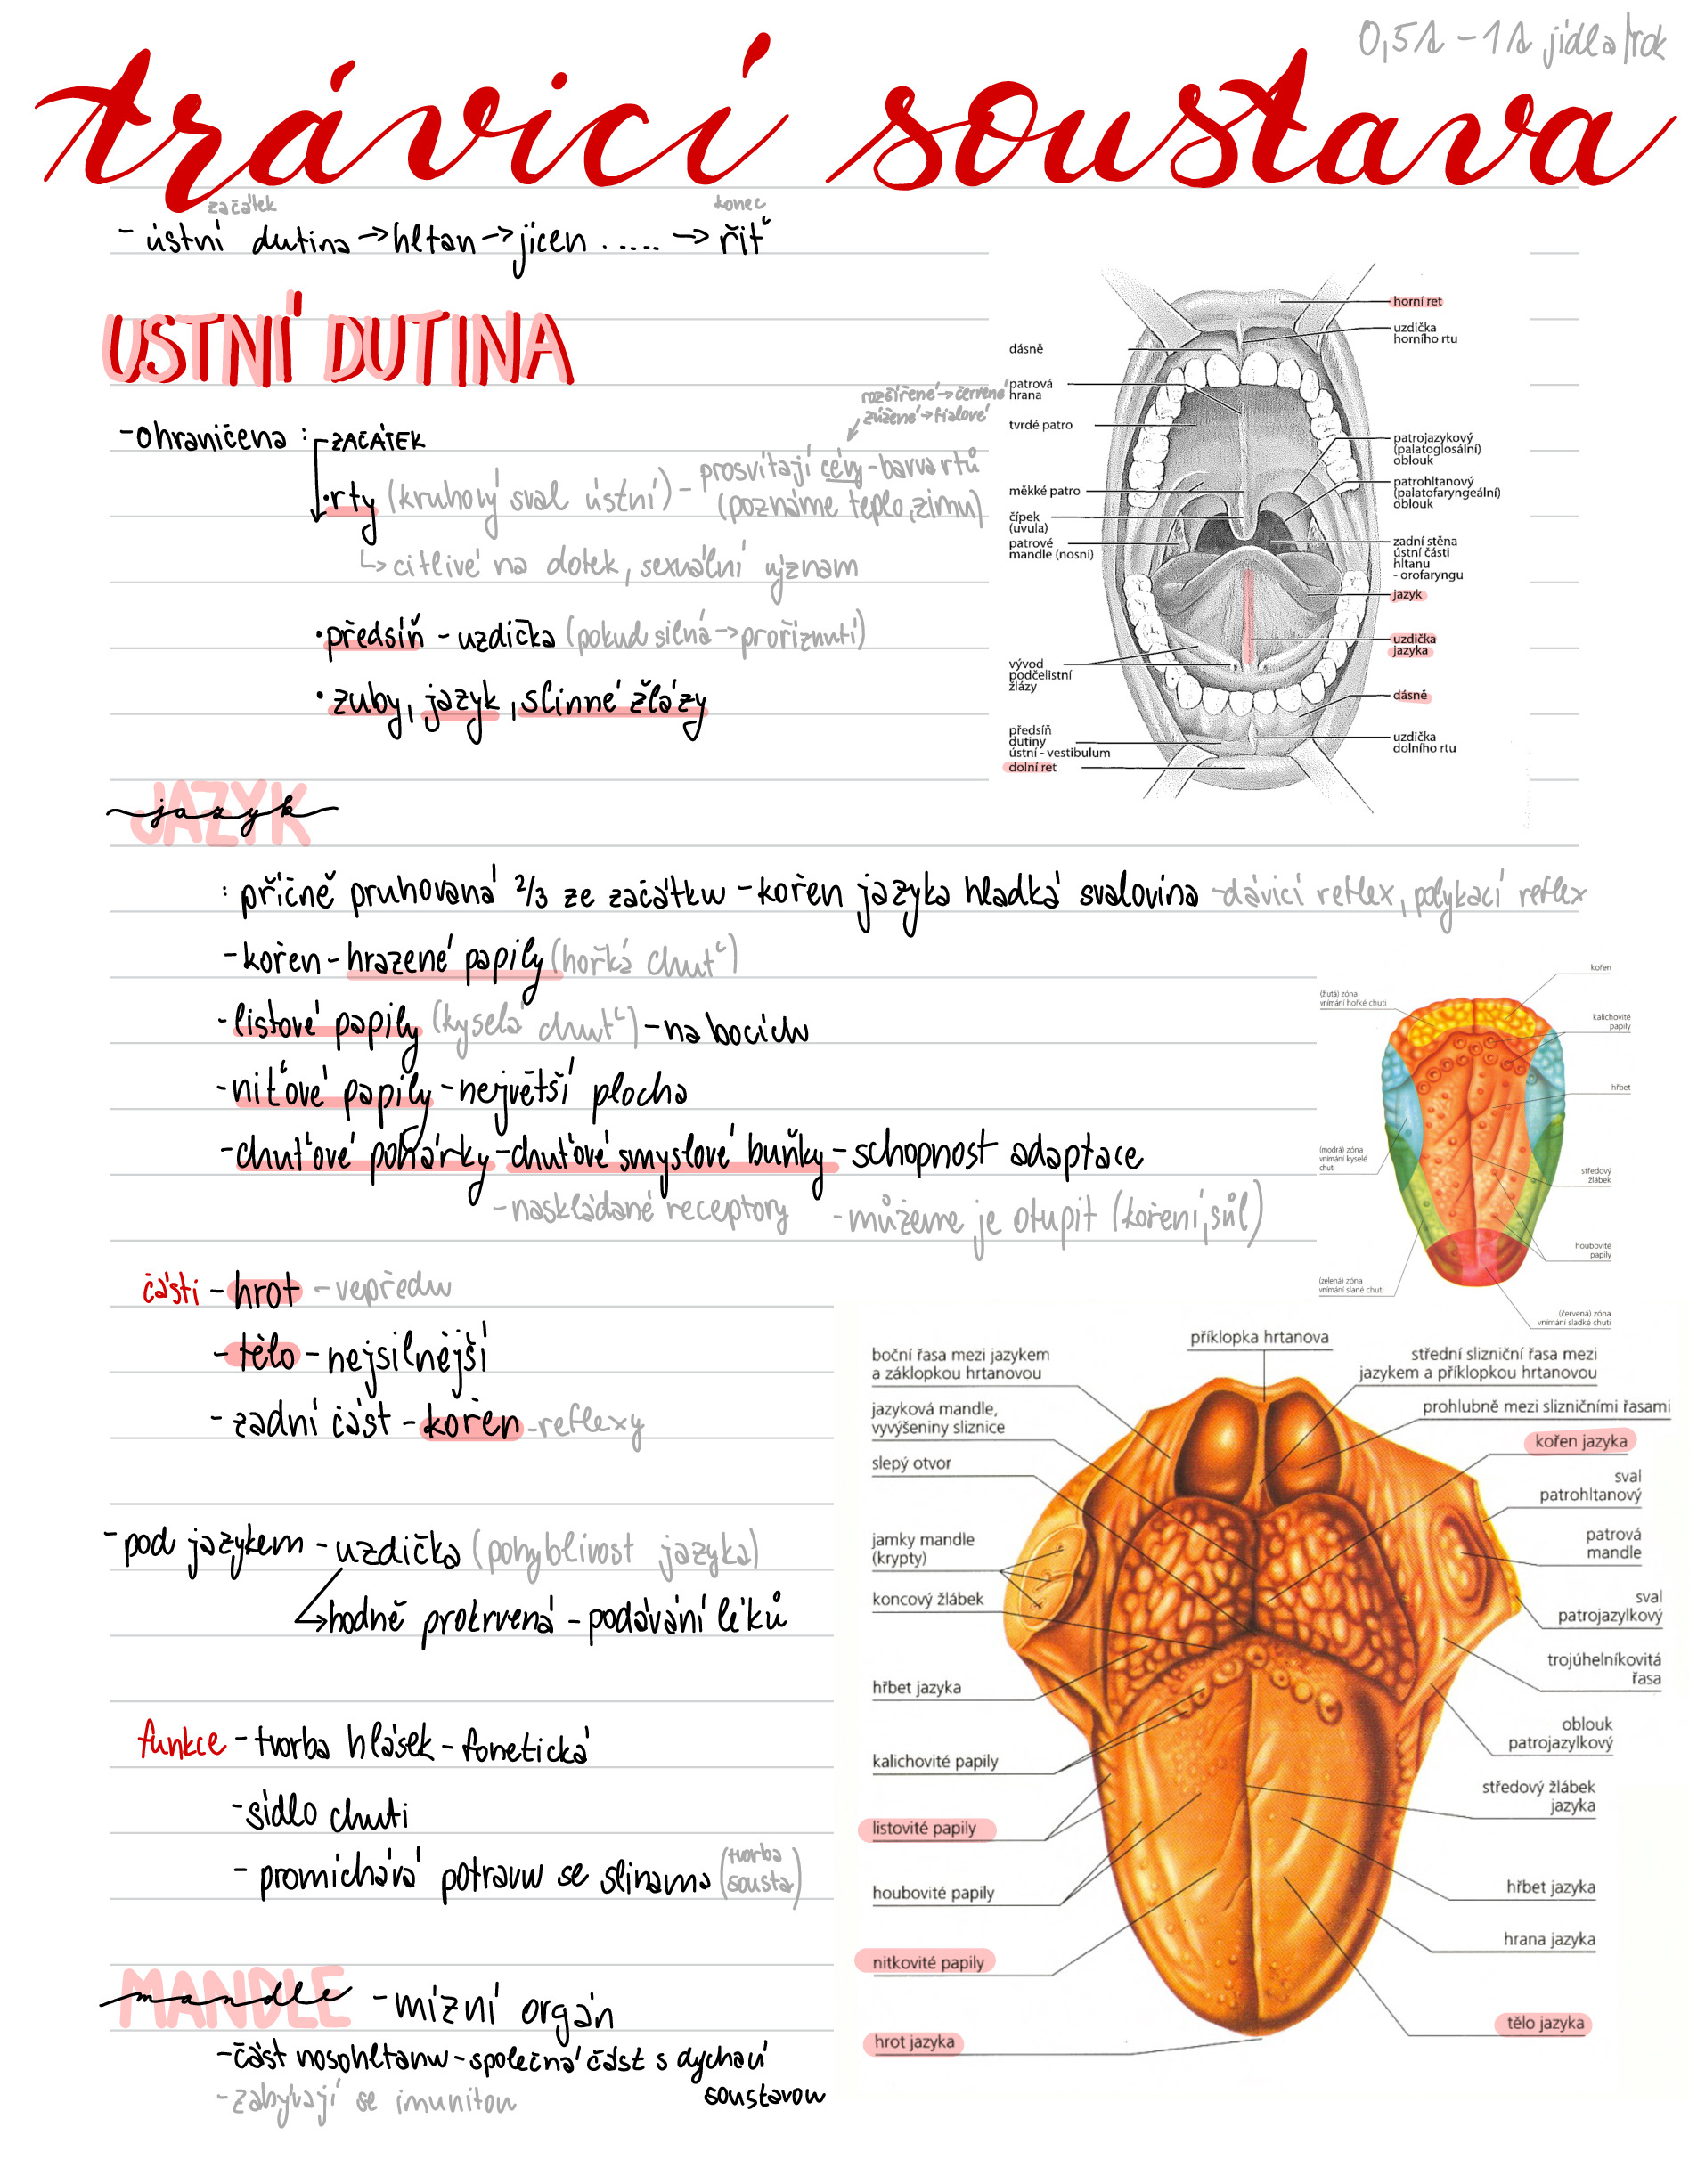 0,5t - 1t jídla/rok
trávicí soustava
začátek
konec
- ústní dutina → hltan → jícen ..... → řiť
USTNÍ DUTINA
- ohraničena : ZAČÁTEK
rozšířené → červené
zúžené → fialové
• rty (kruhový sval ústní) - prosvítají cévy - barva rtů
(poznáme teplo, zimu)
↳ citlivé na dotek, sexuální význam
• předsíň - uzdička (pokud silná → proříznutí)
• zuby, jazyk, slinné žlázy
horní ret
uzdička
horního rtu
dásně
patrová
hrana
tvrdé patro
patrojazykový
(palatoglosální)
oblouk
měkké patro
patrohltanový
(palatofaryngeální)
oblouk
čípek
(uvula)
patrové
mandle (nosní)
zadní stěna
ústní části
hltanu
- orofaryngu
jazyk
uzdička
jazyka
vývod
podčelistní
žlázy
dásně
předsíň
dutiny
ústní - vestibulum
uzdička
dolního rtu
dolní ret
JAZYK
jazyk
: příčně pruhovaná 2/3 ze začátku - kořen jazyka hladká svalovina - dávicí reflex, polykací reflex
- kořen - hrazené papily (hořká chuť)
- listové papily (kyselá chuť) - na bocích
- niťové papily - největší plocha
- chuťové pohárky - chuťové smyslové buňky - schopnost adaptace
- naskládané receptory - můžeme je otupit (koření, sůl)
kořen
(žlutá) zóna
vnímání hořké chuti
kalichovité
papily
hřbet
(modrá) zóna
vnímání kyselé
chuti
středový
žlábek
houbovité
papily
(zelená) zóna
vnímání slané chuti
(červená) zóna
vnímání sladké chuti
části - hrot - vepředu
- tělo - nejsilnější
- zadní část - kořen - reflexy
- pod jazykem - uzdička (pohyblivost jazyka)
↳ hodně prokrvená - podávání léků
funkce - tvorba hlásek - fonetická
- sídlo chuti
- promíchává potravu se slinama (tvorba
sousta)
příklopka hrtanova
boční řasa mezi jazykem
a záklopkou hrtanovou
střední slizniční řasa mezi
jazykem a příklopkou hrtanovou
jazyková mandle,
vyvýšeniny sliznice
prohlubně mezi slizničními řasami
kořen jazyka
slepý otvor
sval
patrohltanový
jamky mandle
(krypty)
patrová
mandle
koncový žlábek
sval
patrojazylkový
trojúhelníkovitá
řasa
hřbet jazyka
oblouk
patrojazylkový
kalichovité papily
středový žlábek
jazyka
listovité papily
houbovité papily
hřbet jazyka
hrana jazyka
nitkovité papily
tělo jazyka
hrot jazyka
MANDLE
mandle - mízní orgán
- část nosohltanu - společná část s dychací
soustavou
- zabývají se imunitou